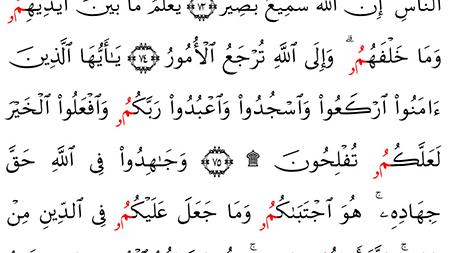 ٱلنَّاسِ إِنَّ ٱللَّهَ سَمِيعُۢ بَصِيرٞ ﴿٧٣﴾ يَعْلَمُ مَا بَيْنَ أَيْدِيهِمُۥ
وَمَا خَلْفَهُمُۥۗ وَإِلَى ٱللَّهِ تُرْجَعُ ٱلْأُمُورُ ﴿٧٤﴾ يَٰٓأَيُّهَا ٱلَّذِينَ
ءَامَنُواْ ٱرْكَعُواْ وَٱسْجُدُواْ وَٱعْبُدُواْ رَبَّكُمُۥ وَٱفْعَلُواْ ٱلْخَيْرَ
لَعَلَّكُمُۥ تُفْلِحُونَ ۩ ﴿٧٥﴾ وَجَٰهِدُواْ فِي ٱللَّهِ حَقَّ
جِهَادِهِۦۚ هُوَ ٱجْتَبَىٰكُمُۥ وَمَا جَعَلَ عَلَيْكُمُۥ فِي ٱلدِّينِ مِنْ